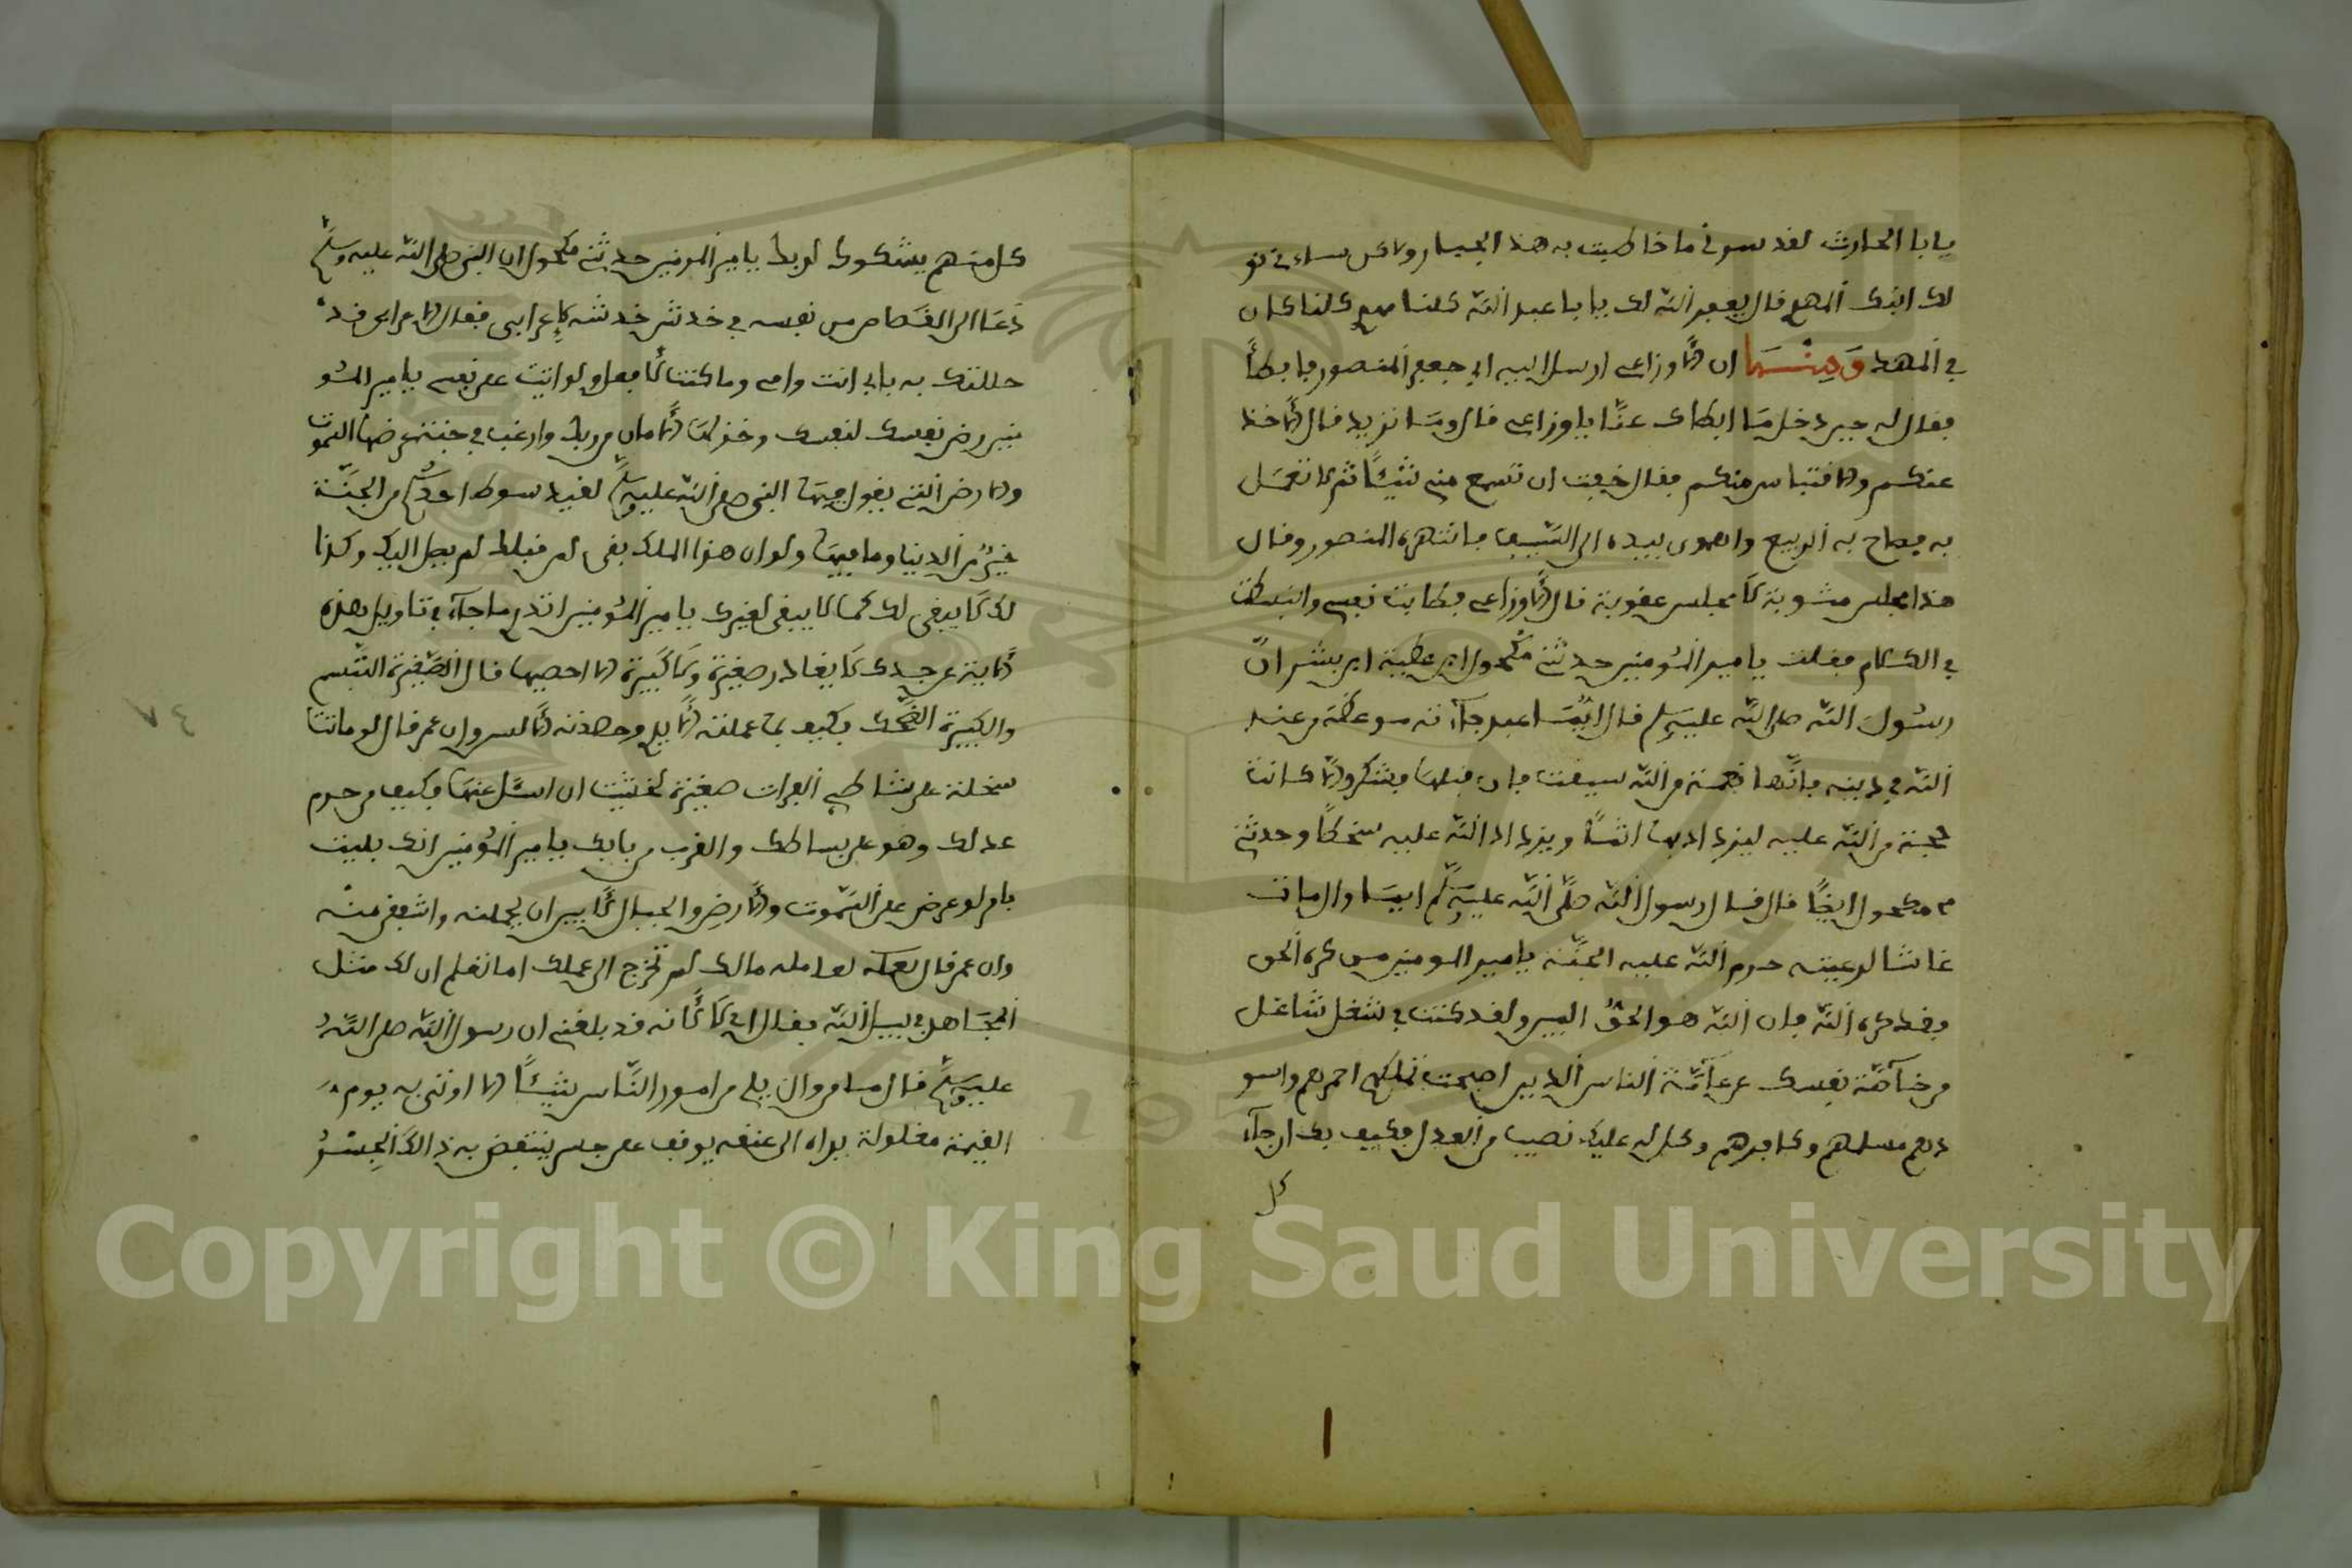 يابا الحارث لقد سرني ما خاطبت به هذا الجبار ولاكن ساءني قو
لك ابنك المهدي قال يغفر الله لك يابا عبد الله كلنا مهدي كلنا كان
في المهد ومنها ان الاوزاعي ارسل اليه ابي جعفر المنصور فابطأ
فقال له حين دخل ما ابطاك عنا ياوزاعي قال وما تريد قال الأخذ
عنكم والاقتباس منكم فقال خفت ان تسمع مني شيئًا ثم لا تعمل
به فصاح به الربيع واهوى بيده الى السيف فانتهره المنصور وقال
هذا مجلس مثوبة لا مجلس عقوبة قال الأوزاعي فطابت نفسي وانبسطت
في الكلام فقلت يامير المؤمنين حدثني مكحول ابن عطية ابن بشر ان
رسول الله صلى الله عليه وسلم قال ايما عبد جاءته موعظة من عند
الله في دينه فانها نعمة من الله سيقت فان قبلها فبشكر والا كانت
حجة من الله عليه ليزداد بها اثمًا ويزداد الله عليه سخطًا وحدثني
مكحول ايضًا قال قال رسول الله صلى الله عليه وسلم ايما وال مات
غاشا لرعيته حرم الله عليه الجنة يامير المومنين من كره الحق
فقد كره الله فان الله هو الحق المبين ولقد كنت في شغل شاغل
من خاصة نفسك عن عامة الناس الذين اصبحت تملكهم احمرهم واسو
دهم مسلمهم وكافرهم وكل له عليك نصيب من العدل فكيف بك ان جاء
كل
كل منهم يشكوك لربك يامير المومنين حدثني مكحول ان النبي صلى الله عليه وسلم
دعا الى القصاص من نفسه في خدش خدشه لاعرابي فقال الاعرابي قد
حللتك به بابي انت وامي وما كنت لأفعل ولو اتيت على نفسي يامير المؤ
منين رض نفسك لنفسك وخذ لها الأمان من ربك وارغب في جنة عرضها السموت
والارض التي يقول فيها النبي صلى الله عليه وسلم لقيد سوط احدكم من الجنة
خير من الدنيا وما فيها ولو ان هذا الملك بقي لمن قبلك لم يصل اليك وكذا
لك لا يبقى لك كما لا يبقى لغيرك يامير المؤمنين اتدري ما جاء في تاويل هذه
الأية عن جدك لا يغادر صغيرة ولا كبيرة الا احصيها قال الصغيرة التبسم
والكبيرة الضحك فكيف بما عملته الأيدي وحصدته الألسن وان عمر قال لو ماتت
سخلة على شاطي الفرات صغيرة لخشيت ان اسئل عنها فكيف من حرم
عدلك وهو على بساطك والقرب من بابك يامير المؤمنين انك بليت
بامر لو عرض على السموت والأرض والجبال لأبين ان يحملنه واشفقن منه
وان عمر قال لعامله مالك لم تخرج الى عملك اما تعلم ان لك مثل
المجاهد في سبيل الله فقال اني لا لأنه قد بلغني ان رسول الله صلى الله
عليه وسلم قال ما من وال يلي من امور الناس شيئًا الا اوتي به يوم
القيمة مغلولة يداه الى عنقه يوقف على جسر ينتفض به ذالك الجسر